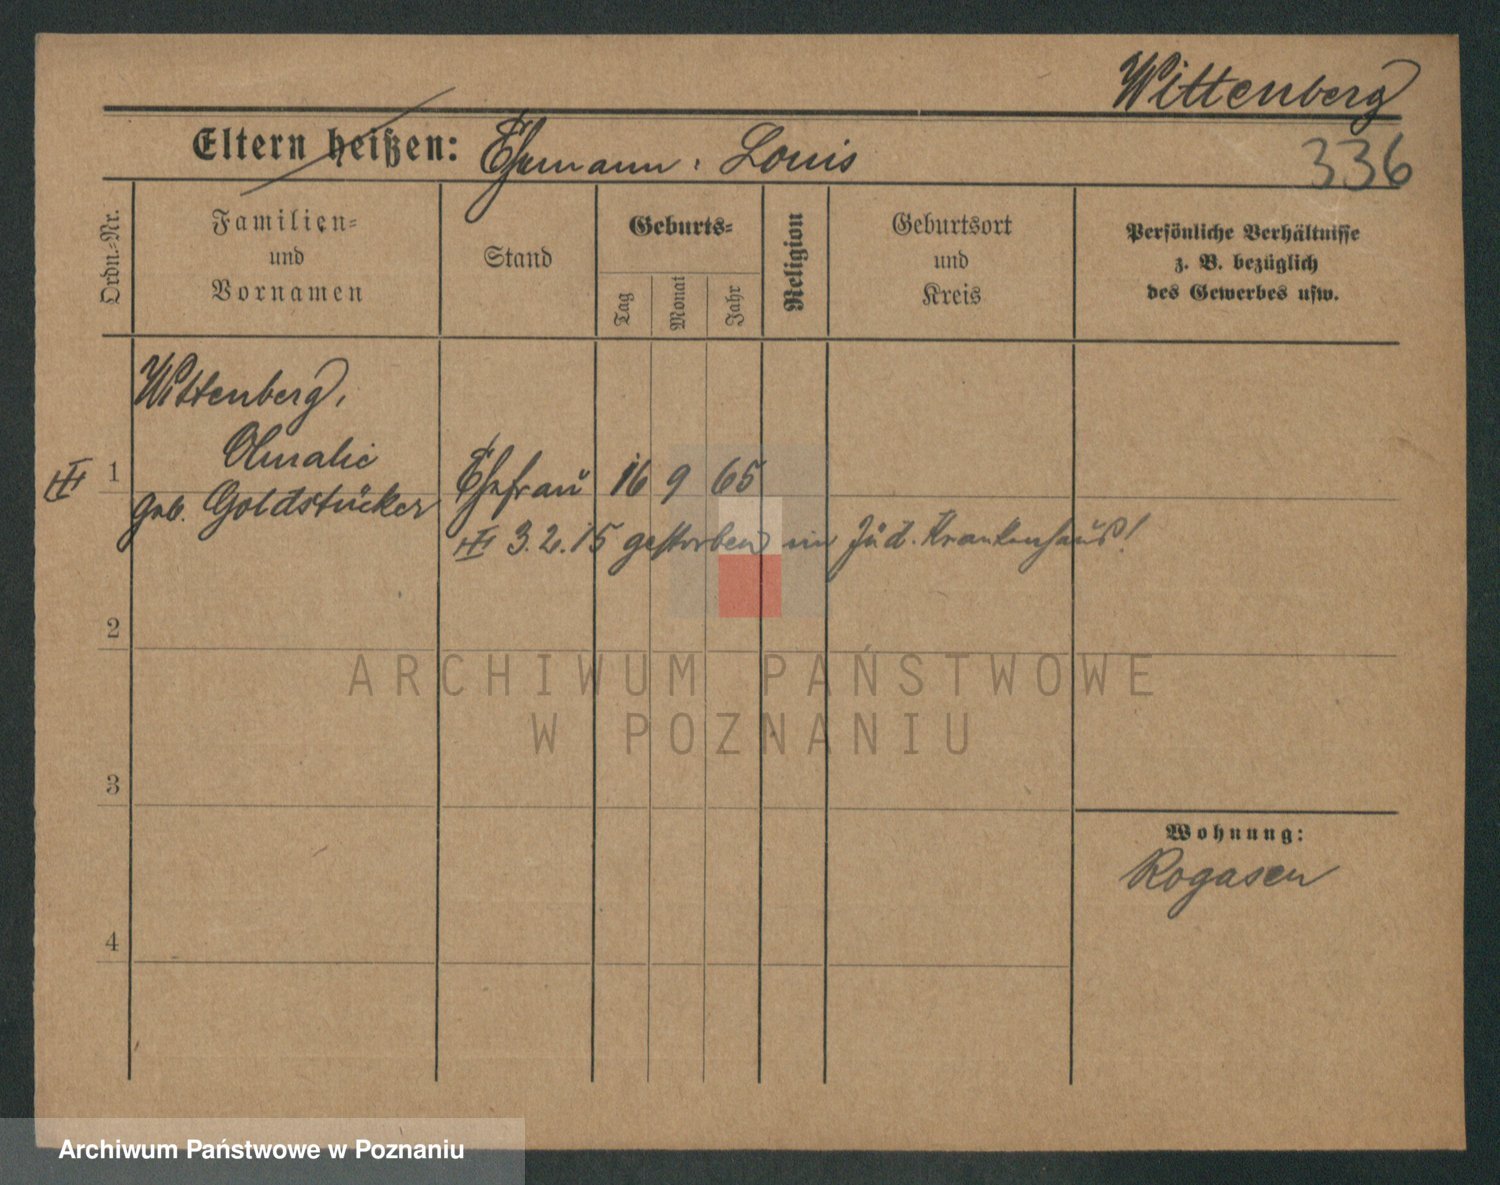 Wittenberg
336
Eltern heißen: Ehemann: Louis
Ordn.-Nr.
Familien-
und
Vornamen
Stand
Geburts-
Tag
Monat
Jahr
Religion
Geburtsort
und
Kreis
Persönliche Verhältnisse
z. B. bezüglich
des Gewerbes usw.
Wittenberg,
Amalie
1
geb. Goldstücker
Ehefrau 16 9 65
3.2.15 gestorben im Jüd. Krankenhaus!
2
3
4
Wohnung:
Rogasen
ARCHIWUM PAŃSTWOWE
W POZNANIU
Archiwum Państwowe w Poznaniu